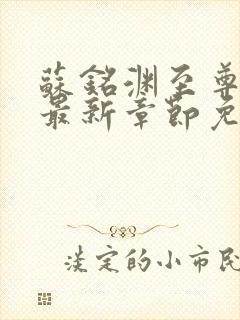 蘇銘淵至尊
最新章節免
淡定的小市民